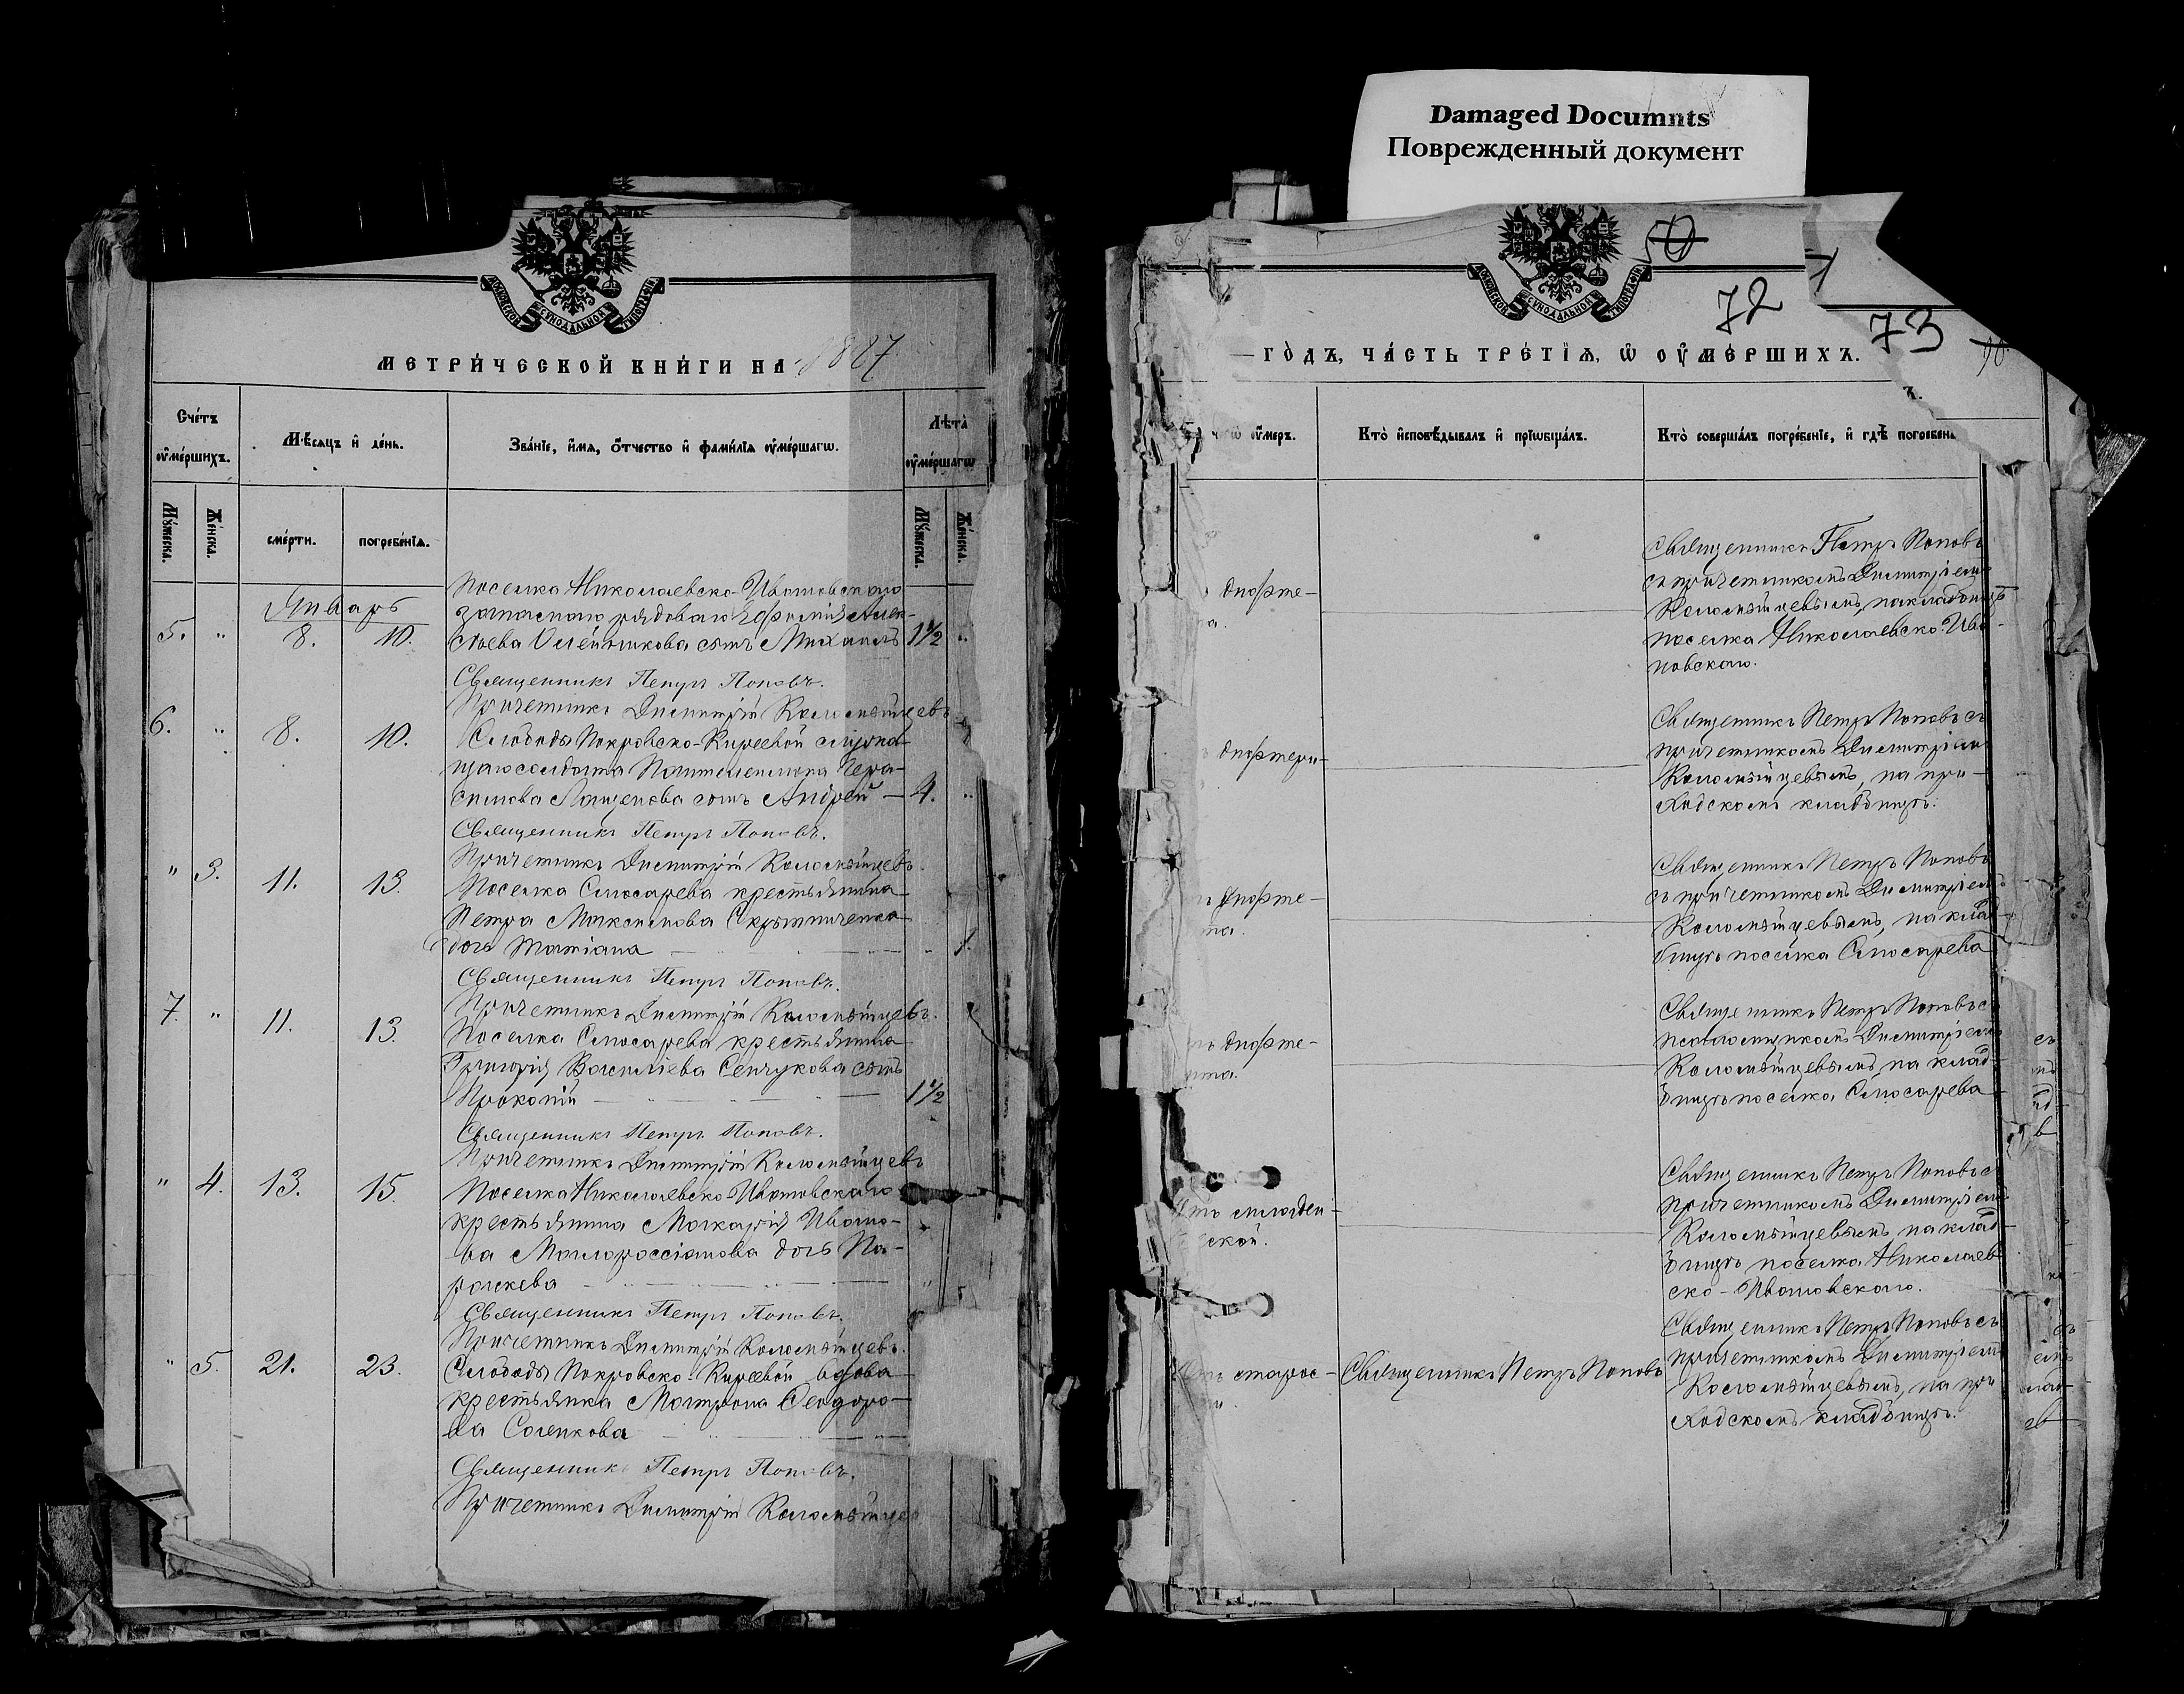 Damaged Documnts
Поврежденный документ
МОСКОВСКОЙ СѴНОДАЛЬНОЙ ТИПОГРАФІИ
МЕТРИ́ЧЕСКОЙ КНИ́ГИ НА 1887
Сче́тъ ᲂу҆ме́ршихъ.
Мѣ́сяцъ и҆ де́нь.
Зва́нїе, и҆́мя, ѻ҆́тчество и҆ фамі́лїя ᲂу҆ме́ршагѡ.
Лѣ́та ᲂу҆ме́ршагѡ
Мꙋ́жеска.
Же́нска.
сме́рти.
погребе́нїя.
Мꙋ́жеска.
Же́нска.
Январь
Поселка Николаевско-Ивановскаго
запаснаго рядоваго Ефимія Алек-
5. " 8. 10. сѣева Олейникова сынъ Михаилъ 1 1/2 "
Священникъ Петръ Поповъ.
Причетникъ Димитрій Коломѣйцевъ
6. " 8. 10. Слободы Покровско-Кирѣевой
солдата Пантелеимона Гера-
симова сынъ Андрей — 4. "
Священникъ Петръ Поповъ.
Причетникъ Димитрій Коломѣйцевъ.
" 3. 11. 13. Поселка Слюсарева крестьянина
Петра Максимова Скрыпниченко
дочь Татіана " 1.
Священникъ Петръ Поповъ.
Причетникъ Димитрій Коломѣйцевъ.
7. " 11. 13. Поселка Слюсарева крестьянина
Григорія Василіева Сенчукова сынъ
Прокопій 1 1/2
Священникъ Петръ Поповъ.
Причетникъ Димитрій Коломѣйцевъ
" 4. 13. 15. Поселка Николаевско-Ивановскаго
крестьянина Макарія Ивано-
ва Малороссіянова дочь Па-
раскева "
Священникъ Петръ Поповъ.
Причетникъ Димитрій Коломѣйцевъ.
" 5. 21. 23. Слободы Покровско-Кирѣевой вдова
крестьянка Матрона Ѳеодоро-
ва Соленкова
Священникъ Петръ Поповъ.
Причетникъ Димитрій Коломѣйцев
МОСКОВСКОЙ СѴНОДАЛЬНОЙ ТИПОГРАФІИ
50
72
73
ГО́ДЪ, ЧА́СТЬ ТРЕ́ТЇЯ, Ѽ ᲂУ҆МЕ́РШИХЪ.
чегѡ̀ ᲂу҆́меръ.
Кто̀ и҆сповѣ́дывалъ и҆ прїѡбща́лъ.
Кто̀ соверша́лъ погребе́нїе, и҆ гдѣ̀ погребены̀
дифте-
та.
Священникъ Петръ Поповъ
съ причетникомъ Димитріемъ
Коломѣйцевымъ, на кладбищѣ
поселка Николаевско-Ива-
новскаго.
дифтери-
Священникъ Петръ Поповъ съ
причетникомъ Димитріемъ
Коломѣйцевымъ, на при-
ходскомъ кладбищѣ.
дифте-
та.
Священникъ Петръ Поповъ
съ причетникомъ Димитріемъ
Коломѣйцевымъ, на клад-
бищѣ поселка Слюсарева
дифте-
та.
Священникъ Петръ Поповъ съ
псаломщикомъ Димитріемъ
Коломѣйцевымъ, на клад-
бищѣ поселка Слюсарева
младен-
ской.
Священникъ Петръ Поповъ съ
причетникомъ Димитріемъ
Коломѣйцевымъ, на клад-
бищѣ поселка Николаев-
ско-Ивановскаго.
старос-
ти.
Священникъ Петръ Поповъ
Священникъ Петръ Поповъ съ
причетникомъ Димитріемъ
Коломѣйцевымъ, на при-
ходскомъ кладбищѣ.